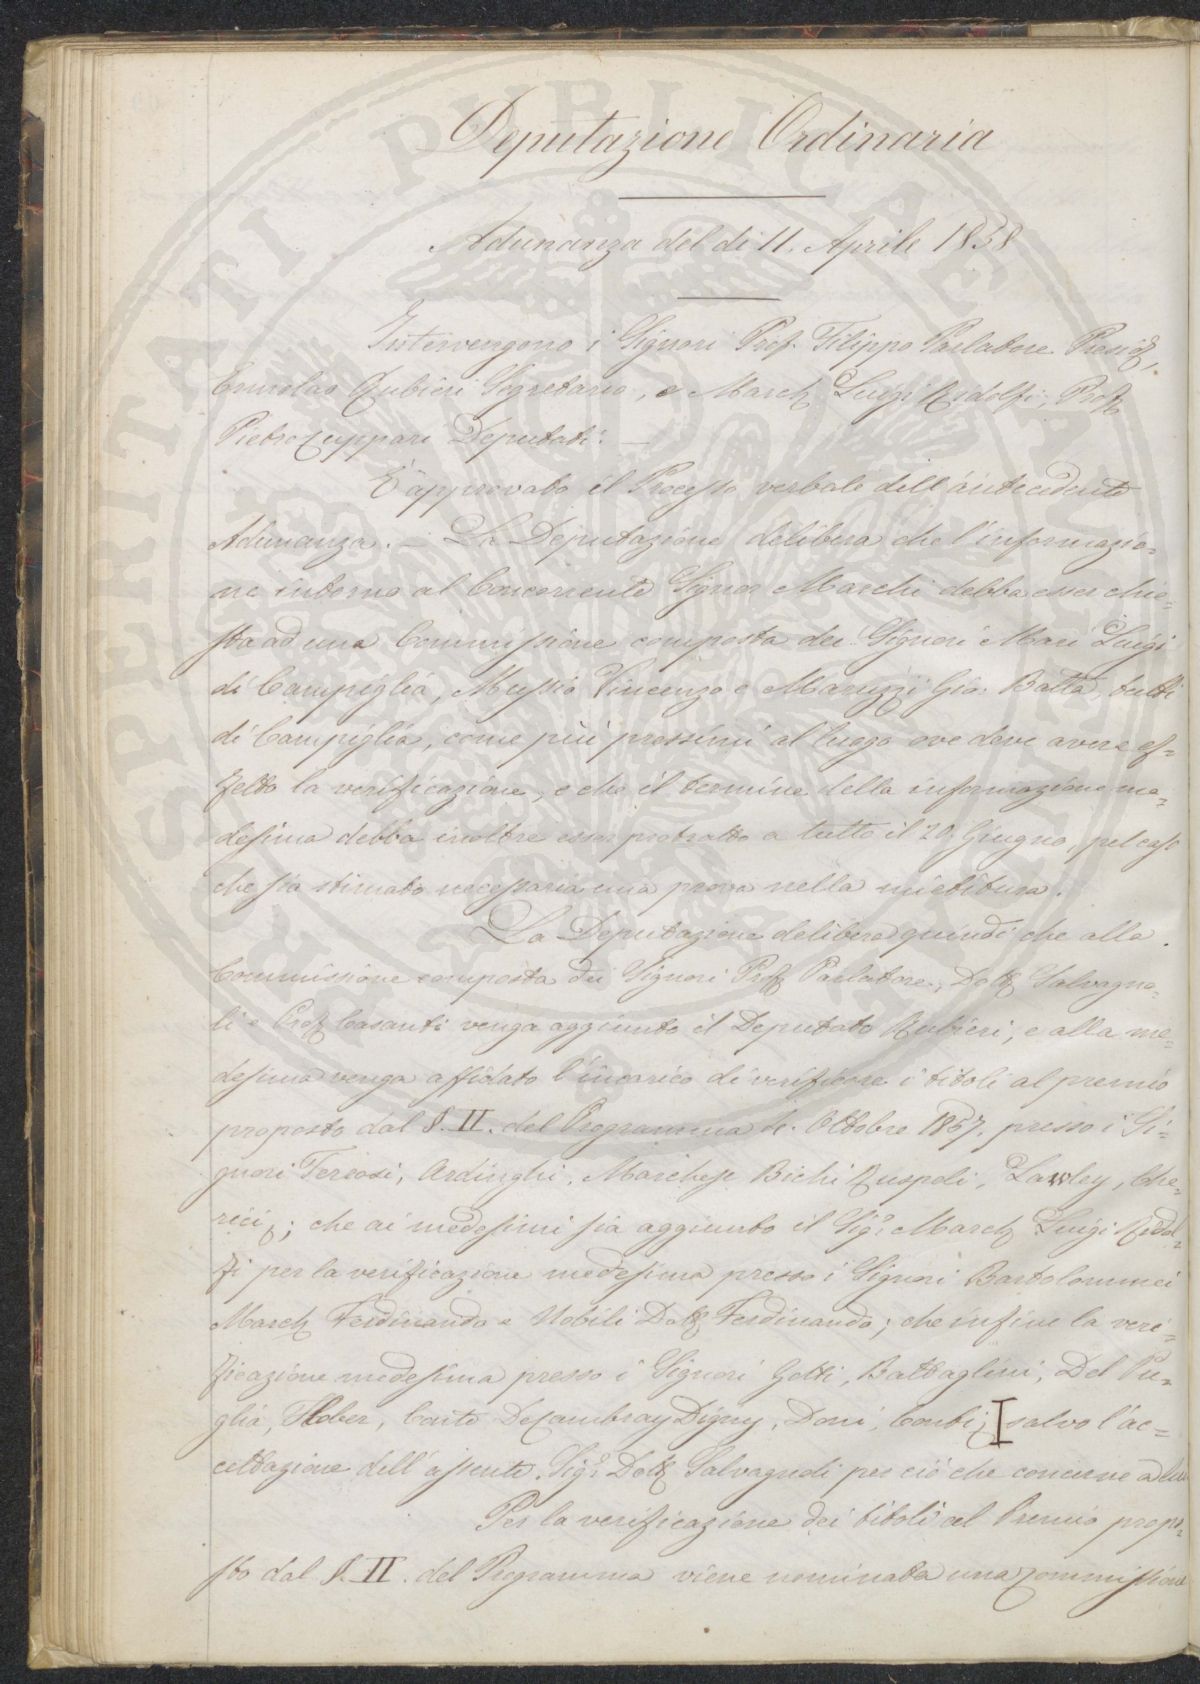 Deputazione Ordinaria
Adunanza del dì 11. Aprile 1858
Intervengono i Signori Prof. Filippo Parlatore Presid.,
Ermolao Rubieri Segretario, e March. Luigi Ridolfi, Prof.
Pietro Cuppari Deputati. —
È approvato il Processo verbale dell'antecedente
Adunanza. — La Deputazione delibera che l'informazio=
ne intorno al Concorrente Signor Marchi debba esser chie=
sta ad una Commissione composta dei Signori Mari Luigi
di Campiglia, Mussio Vincenzo e Maruzzi Gio: Batta, tutti
di Campiglia, come più prossimi al luogo ove deve avere ef=
fetto la verificazione, e che il termine della informazione me=
desima debba inoltre esser protratto a tutto il 20. Giugno, pel caso
che sia stimata necessaria una prova nella mietitura.
La Deputazione delibera quindi che alla
Commissione composta dei Signori Prof. Parlatore, Dott. Salvagno=
li e Prof. Casanti venga aggiunto il Deputato Rubieri, e alla me=
desima venga affidato l'incarico di verificare i titoli al premio
proposto dal §. II. del Programma de' Ottobre 1857. presso i Si=
gnori Teriosi, Ardinghi, Marchese Bichi Ruspoli, Lawley, Che=
rici; che ai medesimi sia aggiunto il Sig. March. Luigi Ridol=
fi per la verificazione medesima presso i Signori Bartolommei
March. Ferdinando e Nobili Dott. Ferdinando; che infine la veri=
ficazione medesima presso i Signori Gotti, Battaglini, Del Pu=
glia, Slober, Conte De Cambray Digny, Doni, Conti; salvo l'ac=
cettazione dell'assente Sig. Dott. Salvagnoli per ciò che concerne a lui
Per la verificazione dei titoli al Premio propo=
sto dal §. II. del Programma viene nominata una Commissione